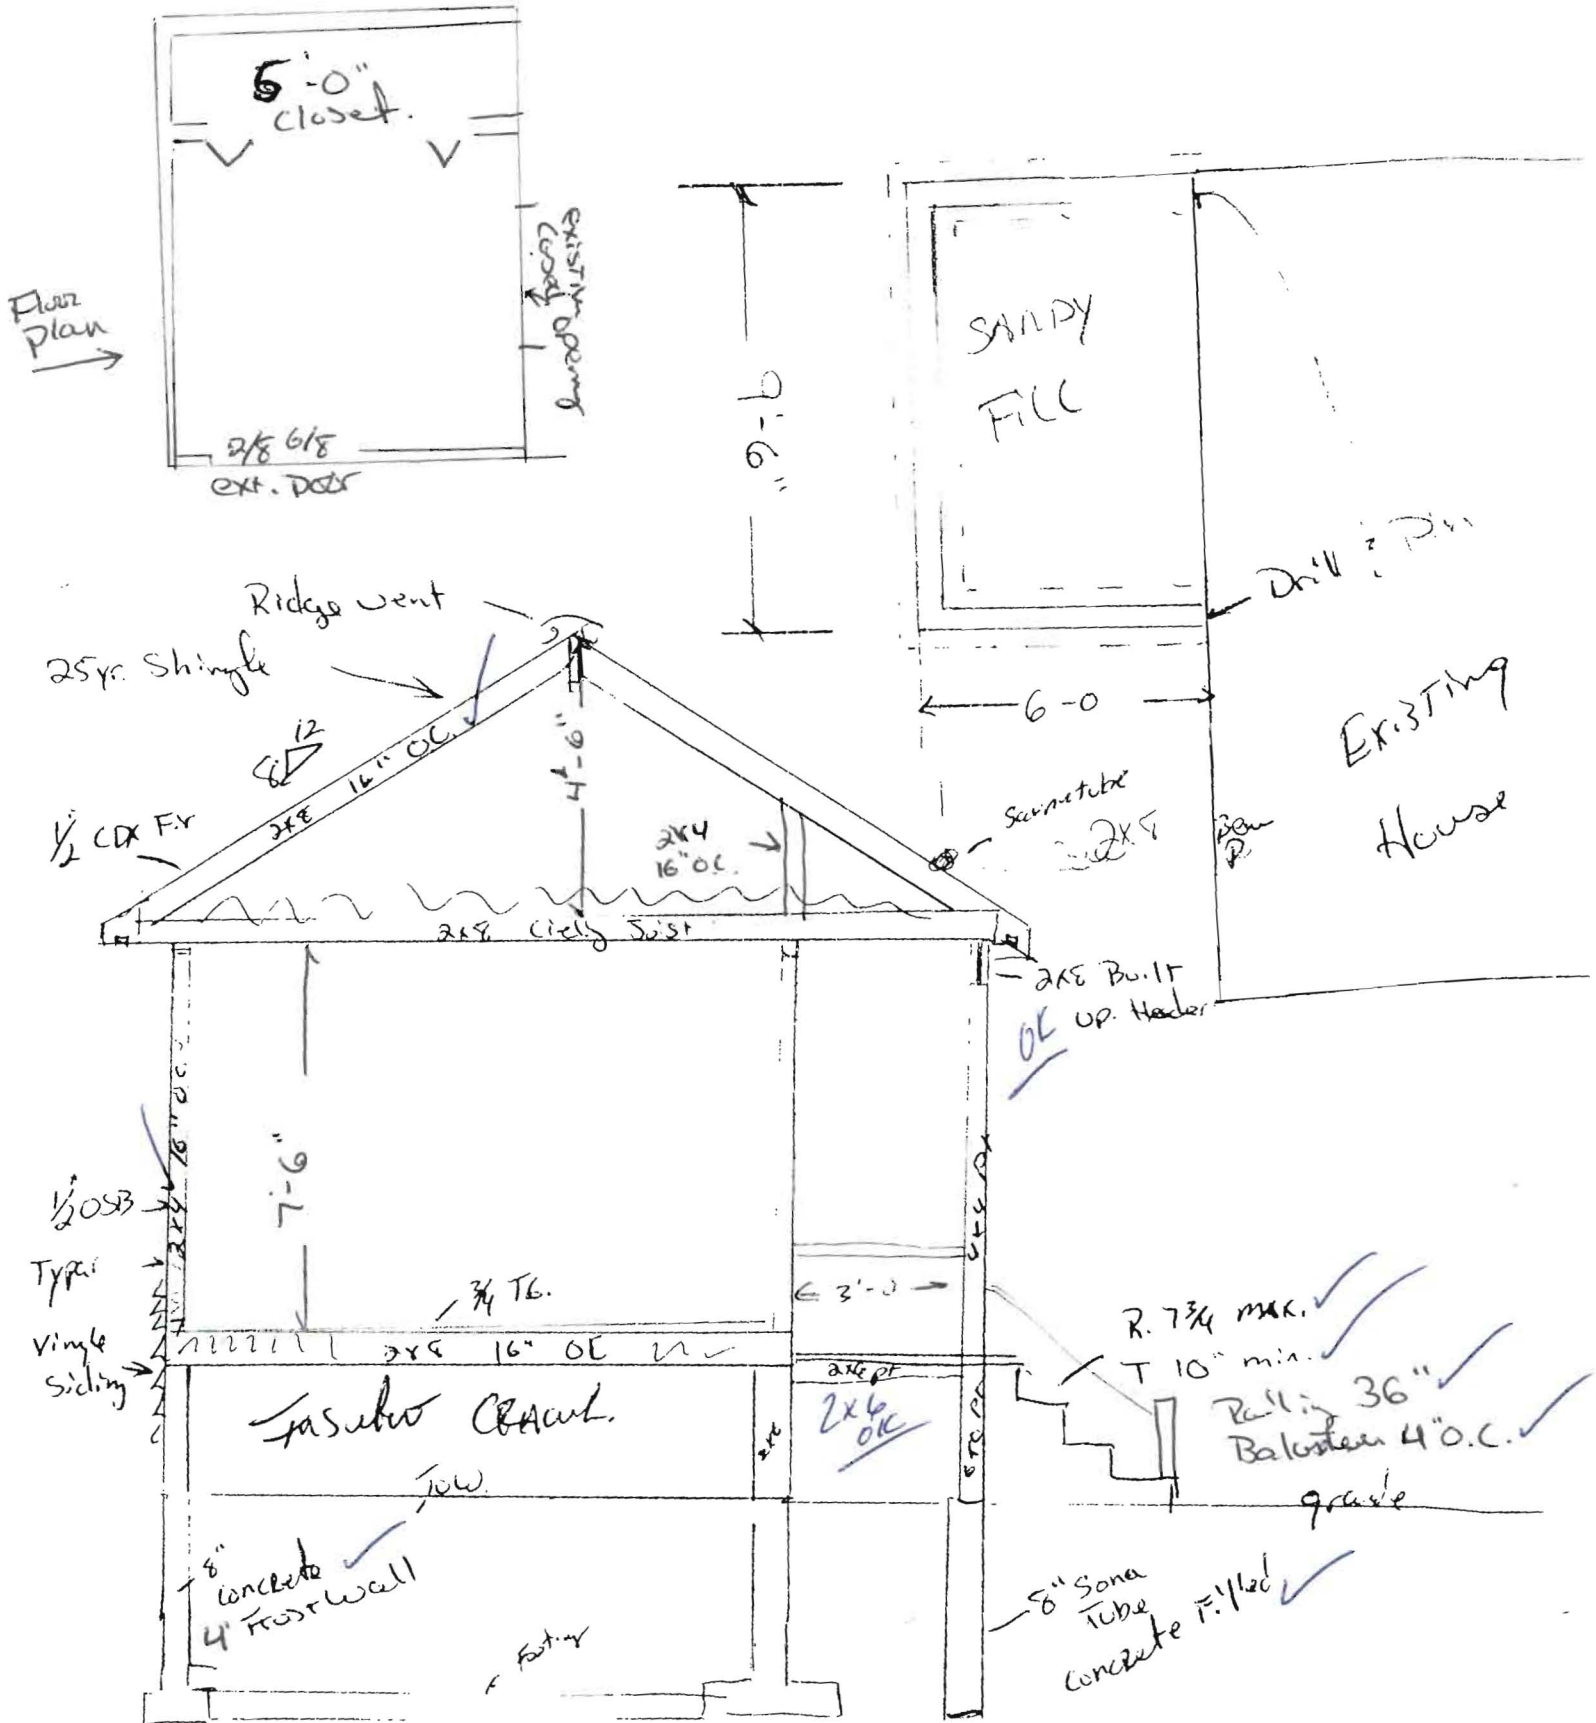 5'-0"
closet.
existing
cased opening
Floor
plan
2/8 6/8
ext. Door
9'-6"
SANDY
FILL
Drill & Pin
6-0
Existing
House
Ridge vent
25 yr. Shingle
12
8
2x8 16" OC.
1/2 CDX Fir
4'-6"
2x4
16" O.C.
2x8
2x8 Cielg Joist
2x8 Built
up. Header
OK
2x4 16" O.C.
7'-6"
1/2 OSB
Typar
Vinyle
Siding
3/4 TG.
2x8 16" OC
3'-0
2x6 pt
2x6
OK
R. 7 3/4 max.
T 10" min.
Railing 36"
Baluster 4" O.C.
grade
CRAWL.
T.O.W.
8"
concrete
4' Frost wall
footing
8" Sona
Tube
concrete Filled